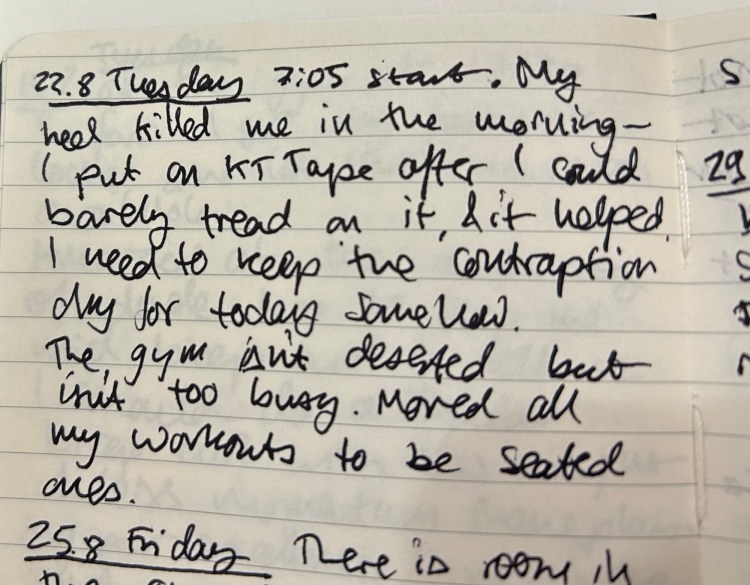 22.8 Tuesday 7:05 start. My
heel killed me in the morning –
I put on KT Tape after I could
barely tread on it, & it helped.
I need to keep the contraption
dry for today somehow.
The gym isn't deserted but
isn't too busy. Moved all
my workouts to be seated
ones.
25.8 Friday There is room in
29